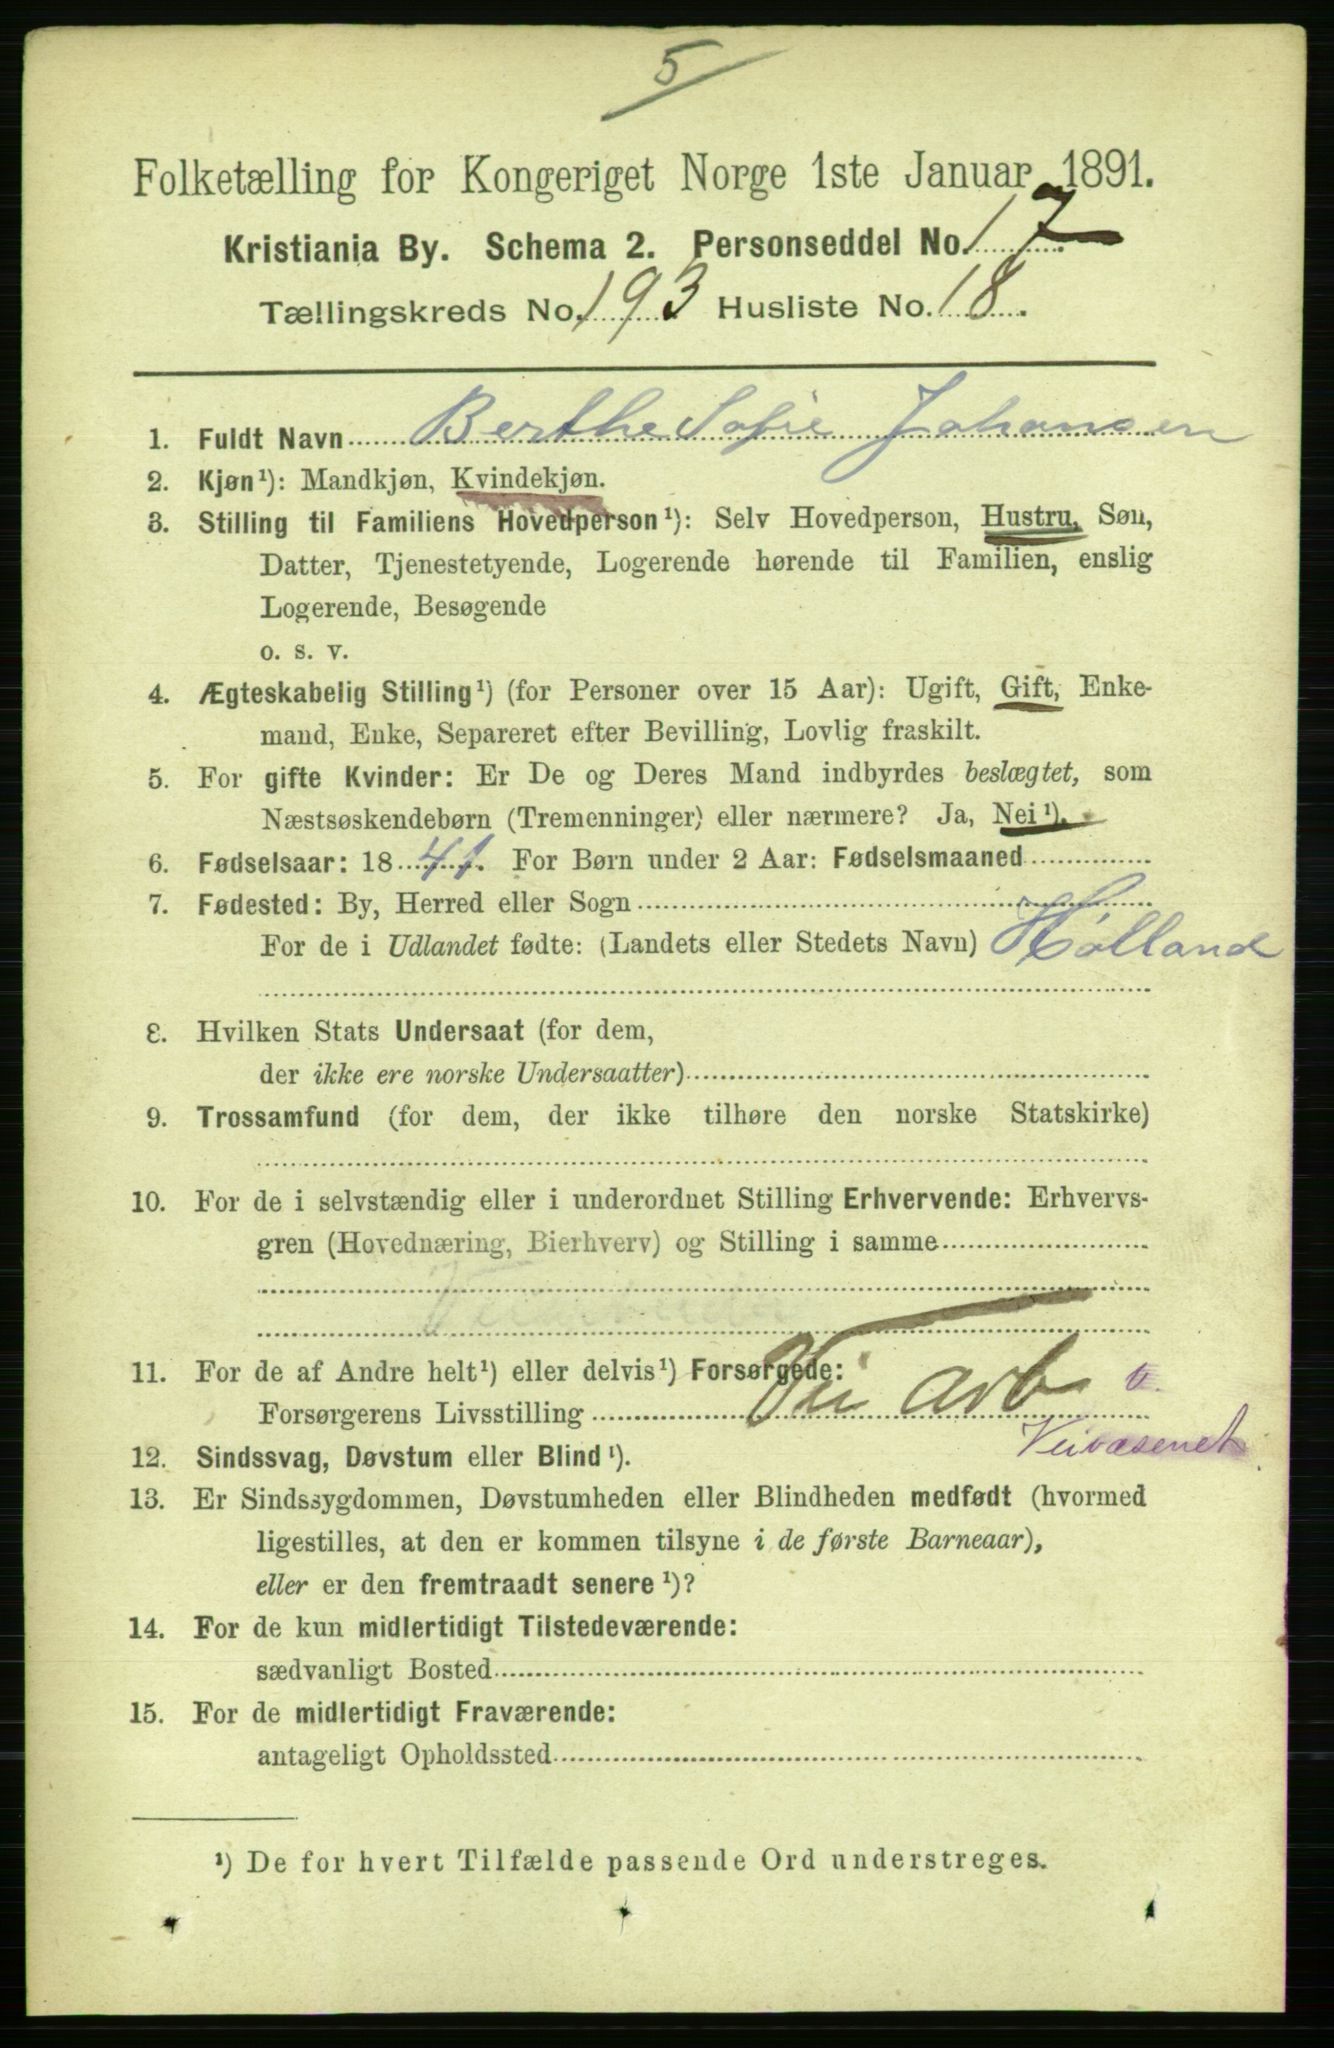 5
Folketælling for Kongeriget Norge 1ste Januar 1891.
Kristiania By. Schema 2. Personseddel No. 17.
Tællingskreds No. 193 Husliste No. 18.
1. Fuldt Navn Berthe Sofie Johansen
2. Kjøn¹): Mandkjøn, Kvindekjøn.
3. Stilling til Familiens Hovedperson¹): Selv Hovedperson, Hustru, Søn,
Datter, Tjenestetyende, Logerende hørende til Familien, enslig
Logerende, Besøgende
o. s. v.
4. Ægteskabelig Stilling¹) (for Personer over 15 Aar): Ugift, Gift, Enke-
mand, Enke, Separeret efter Bevilling, Lovlig fraskilt.
5. For gifte Kvinder: Er De og Deres Mand indbyrdes beslægtet, som
Næstsøskendebørn (Tremenninger) eller nærmere? Ja, Nei¹).
6. Fødselsaar: 1841. For Børn under 2 Aar: Fødselsmaaned
7. Fødested: By, Herred eller Sogn
For de i Udlandet fødte: (Landets eller Stedets Navn) HøLland
8. Hvilken Stats Undersaat (for dem,
der ikke ere norske Undersaatter)
9. Trossamfund (for dem, der ikke tilhøre den norske Statskirke)
10. For de i selvstændig eller i underordnet Stilling Erhvervende: Erhvervs-
gren (Hovednæring, Bierhverv) og Stilling i samme
11. For de af Andre helt¹) eller delvis¹) Forsørgede:
Forsørgerens Livsstilling Vei Arb v.
Veivæsenet
12. Sindssvag, Døvstum eller Blind¹).
13. Er Sindssygdommen, Døvstumheden eller Blindheden medfødt (hvormed
ligestilles, at den er kommen tilsyne i de første Barneaar),
eller er den fremtraadt senere¹)?
14. For de kun midlertidigt Tilstedeværende:
sædvanligt Bosted
15. For de midlertidigt Fraværende:
antageligt Opholdssted
¹) De for hvert Tilfælde passende Ord understreges.